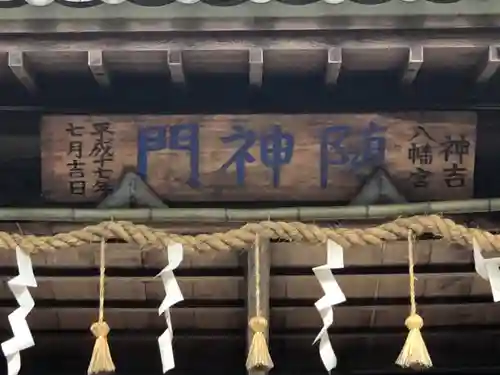 神吉
八幡宮
随神門
平成十七年
七月吉日